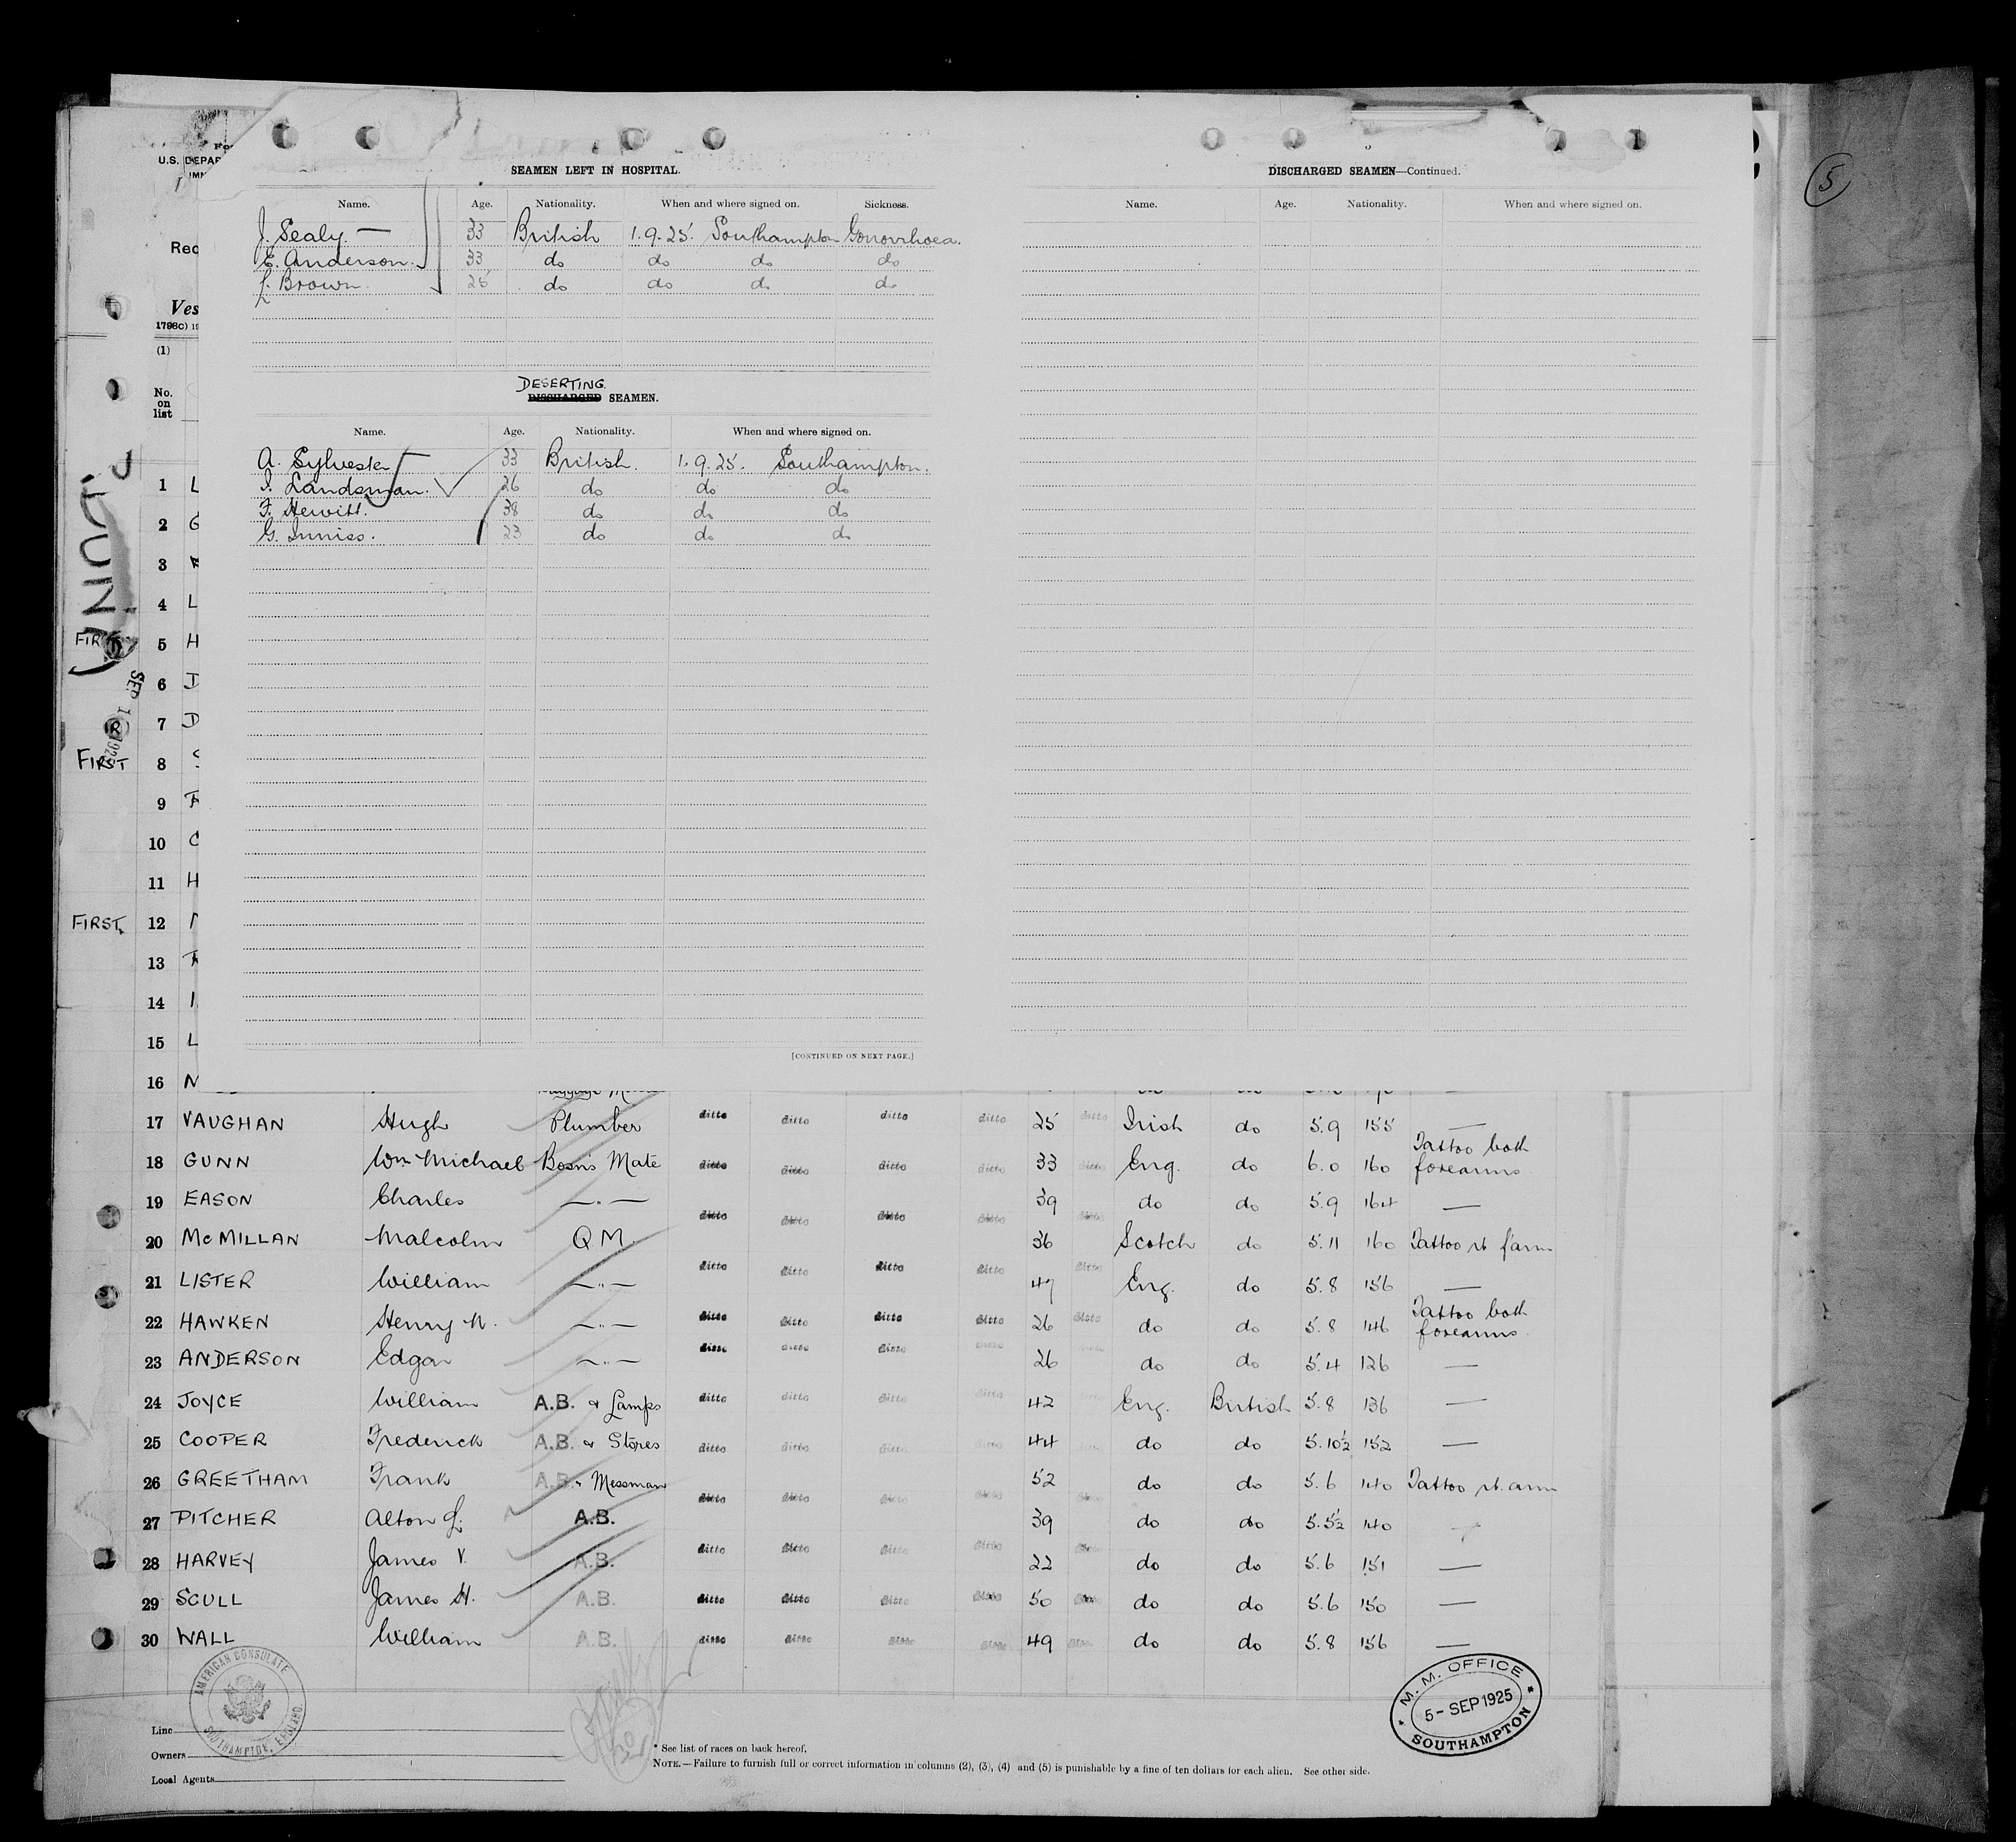 U.S. DEPAR
Rec
Ves
1798C)
(1)
No.
on
list
SEAMEN LEFT IN HOSPITAL.
Name. Age. Nationality. When and where signed on. Sickness.
J. Sealy. — 33 British 1.9.25. Southampton Gonorrhoea.
E. Anderson. 33 do do do do
Brown. 25 do do do do
DESERTING
DISCHARGED SEAMEN.
Name. Age. Nationality. When and where signed on.
A. Sylvester 33 British. 1.9.25. Southampton.
I. Landsman. 26 do do do
F. Hewitt. 38 do do do
G. Inniss. 23 do do do
[CONTINUED ON NEXT PAGE.]
DISCHARGED SEAMEN—Continued.
Name. Age. Nationality. When and where signed on.
5
SEP 1
1 L
2 G
3
4 L
FIRST 5 H
6 D
7 D
FIRST 8
9
10 C
11 H
FIRST 12
13
14
15 L
16
17 VAUGHAN Hugh Plumber ditto ditto ditto ditto 25 ditto Irish do 5.9 155 —
18 GUNN Wm Michael Bosn's Mate ditto ditto ditto ditto 33 ditto Eng. do 6.0 160 Tattoo both forearms
19 EASON Charles —"— ditto ditto ditto ditto 39 ditto do do 5.9 164 —
20 McMILLAN Malcolm Q.M. 36 Scotch do 5.11 160 Tattoo rt farm
21 LISTER William —"— ditto ditto ditto ditto 47 ditto Eng. do 5.8 156 —
22 HAWKEN Henry N. —"— ditto ditto ditto ditto 26 ditto do do 5.8 146 Tattoo both forearms
23 ANDERSON Edgar —"— ditto ditto ditto ditto 26 do do 5.4 126 —
24 JOYCE William A.B. & Lamps ditto ditto ditto ditto 42 Eng. British 5.8 136 —
25 COOPER Frederick A.B. & Stores ditto ditto ditto ditto 44 do do 5.10½ 152 —
26 GREETHAM Frank A.B. & Messman ditto ditto ditto ditto 52 do do 5.6 140 Tattoo rt. arm
27 PITCHER Alton A.B. 39 do do 5.5½ 140
28 HARVEY James V. A.B. ditto ditto ditto ditto 22 ditto do do 5.6 151 —
29 SCULL James H. A.B. ditto ditto ditto ditto 50 ditto do do 5.6 150 —
30 WALL William A.B. ditto ditto ditto ditto 49 ditto do do 5.8 156 —
AMERICAN CONSULATE
SOUTHAMPTON, ENGLAND
M. M. OFFICE
5 - SEP 1925
SOUTHAMPTON
Line
Owners
Local Agents
* See list of races on back hereof.
NOTE.—Failure to furnish full or correct information in columns (2), (3), (4) and (5) is punishable by a fine of ten dollars for each alien. See other side.